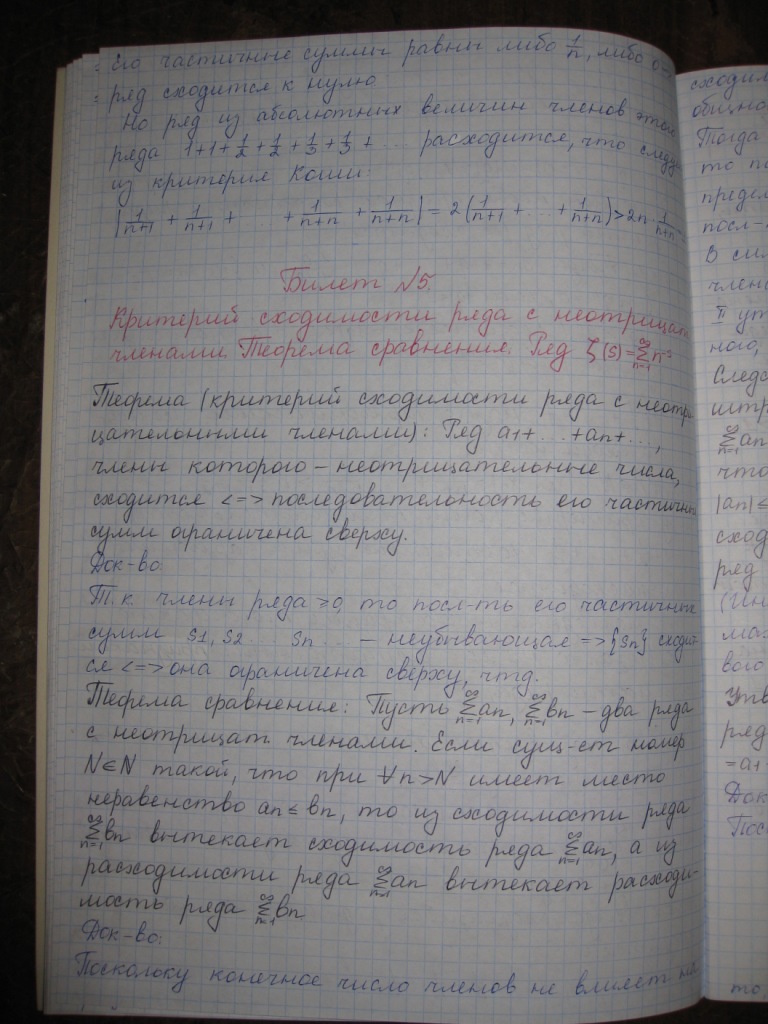 его частичные суммы равны либо 1/n, либо 0 -
ряд сходится к нулю
Но ряд из абсолютных величин членов этого
ряда 1+1+1/2+1/2+1/3+1/3+... расходится, что следу
из критерия Коши:
|1/(n+1) + 1/(n+1) + ... + 1/(n+n) + 1/(n+n)| = 2(1/(n+1) + ... + 1/(n+n)) > 2n · 1/(n+n)
Билет №5.
Критерий сходимости ряда с неотрицат
членами. Теорема сравнения. Ряд ζ(s)=∑n=1^∞ n^-s
Теорема (критерий сходимости ряда с неотри
цательными членами): Ряд a1+...+an+...,
члены которого – неотрицательные числа,
сходится <=> последовательность его частичных
сумм ограничена сверху.
Док-во:
Т.к. члены ряда ≥0, то посл-ть его частичных
сумм s1, s2 ... sn ... – неубывающая => {sn} сходит
ся <=> она ограничена сверху, чтд.
Теорема сравнения: Пусть ∑n=1^∞ an, ∑n=1^∞ bn – два ряда
с неотрицат. членами. Если сущ-ет номер
N∈N такой, что при ∀n>N имеет место
неравенство an ≤ bn, то из сходимости ряда
∑n=1^∞ bn вытекает сходимость ряда ∑n=1^∞ an, а из
расходимости ряда ∑n=1^∞ an вытекает расходи-
мость ряда ∑n=1^∞ bn
Док-во:
Поскольку конечное число членов не влияет на
сходим
общно
Тогда
то по
предел
посл-
В сил
члена
II ут
ного,
Следс
штр
∑n=1^∞ an
что
|an|≤
сход
ряд
(Ин
маж
вого
Утв
ряд
=a1+
Док
Пос
то,